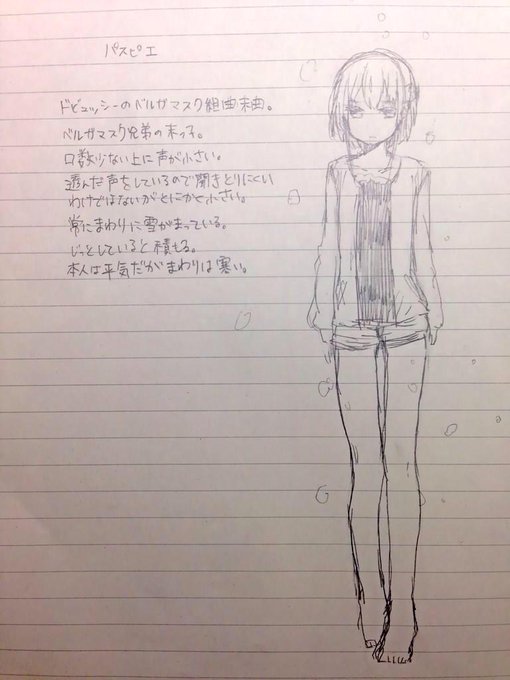 パスピエ
ドビュッシーのベルガマスク組曲末曲。
ベルガマスク兄弟の末っ子。
口数少ない上に声が小さい。
透んだ声をしているので聞きとりにくい
わけではないがとにかく小さい。
常にまわりに雪がまっている。
じっとしていると積もる。
本人は平気だがまわりは寒い。